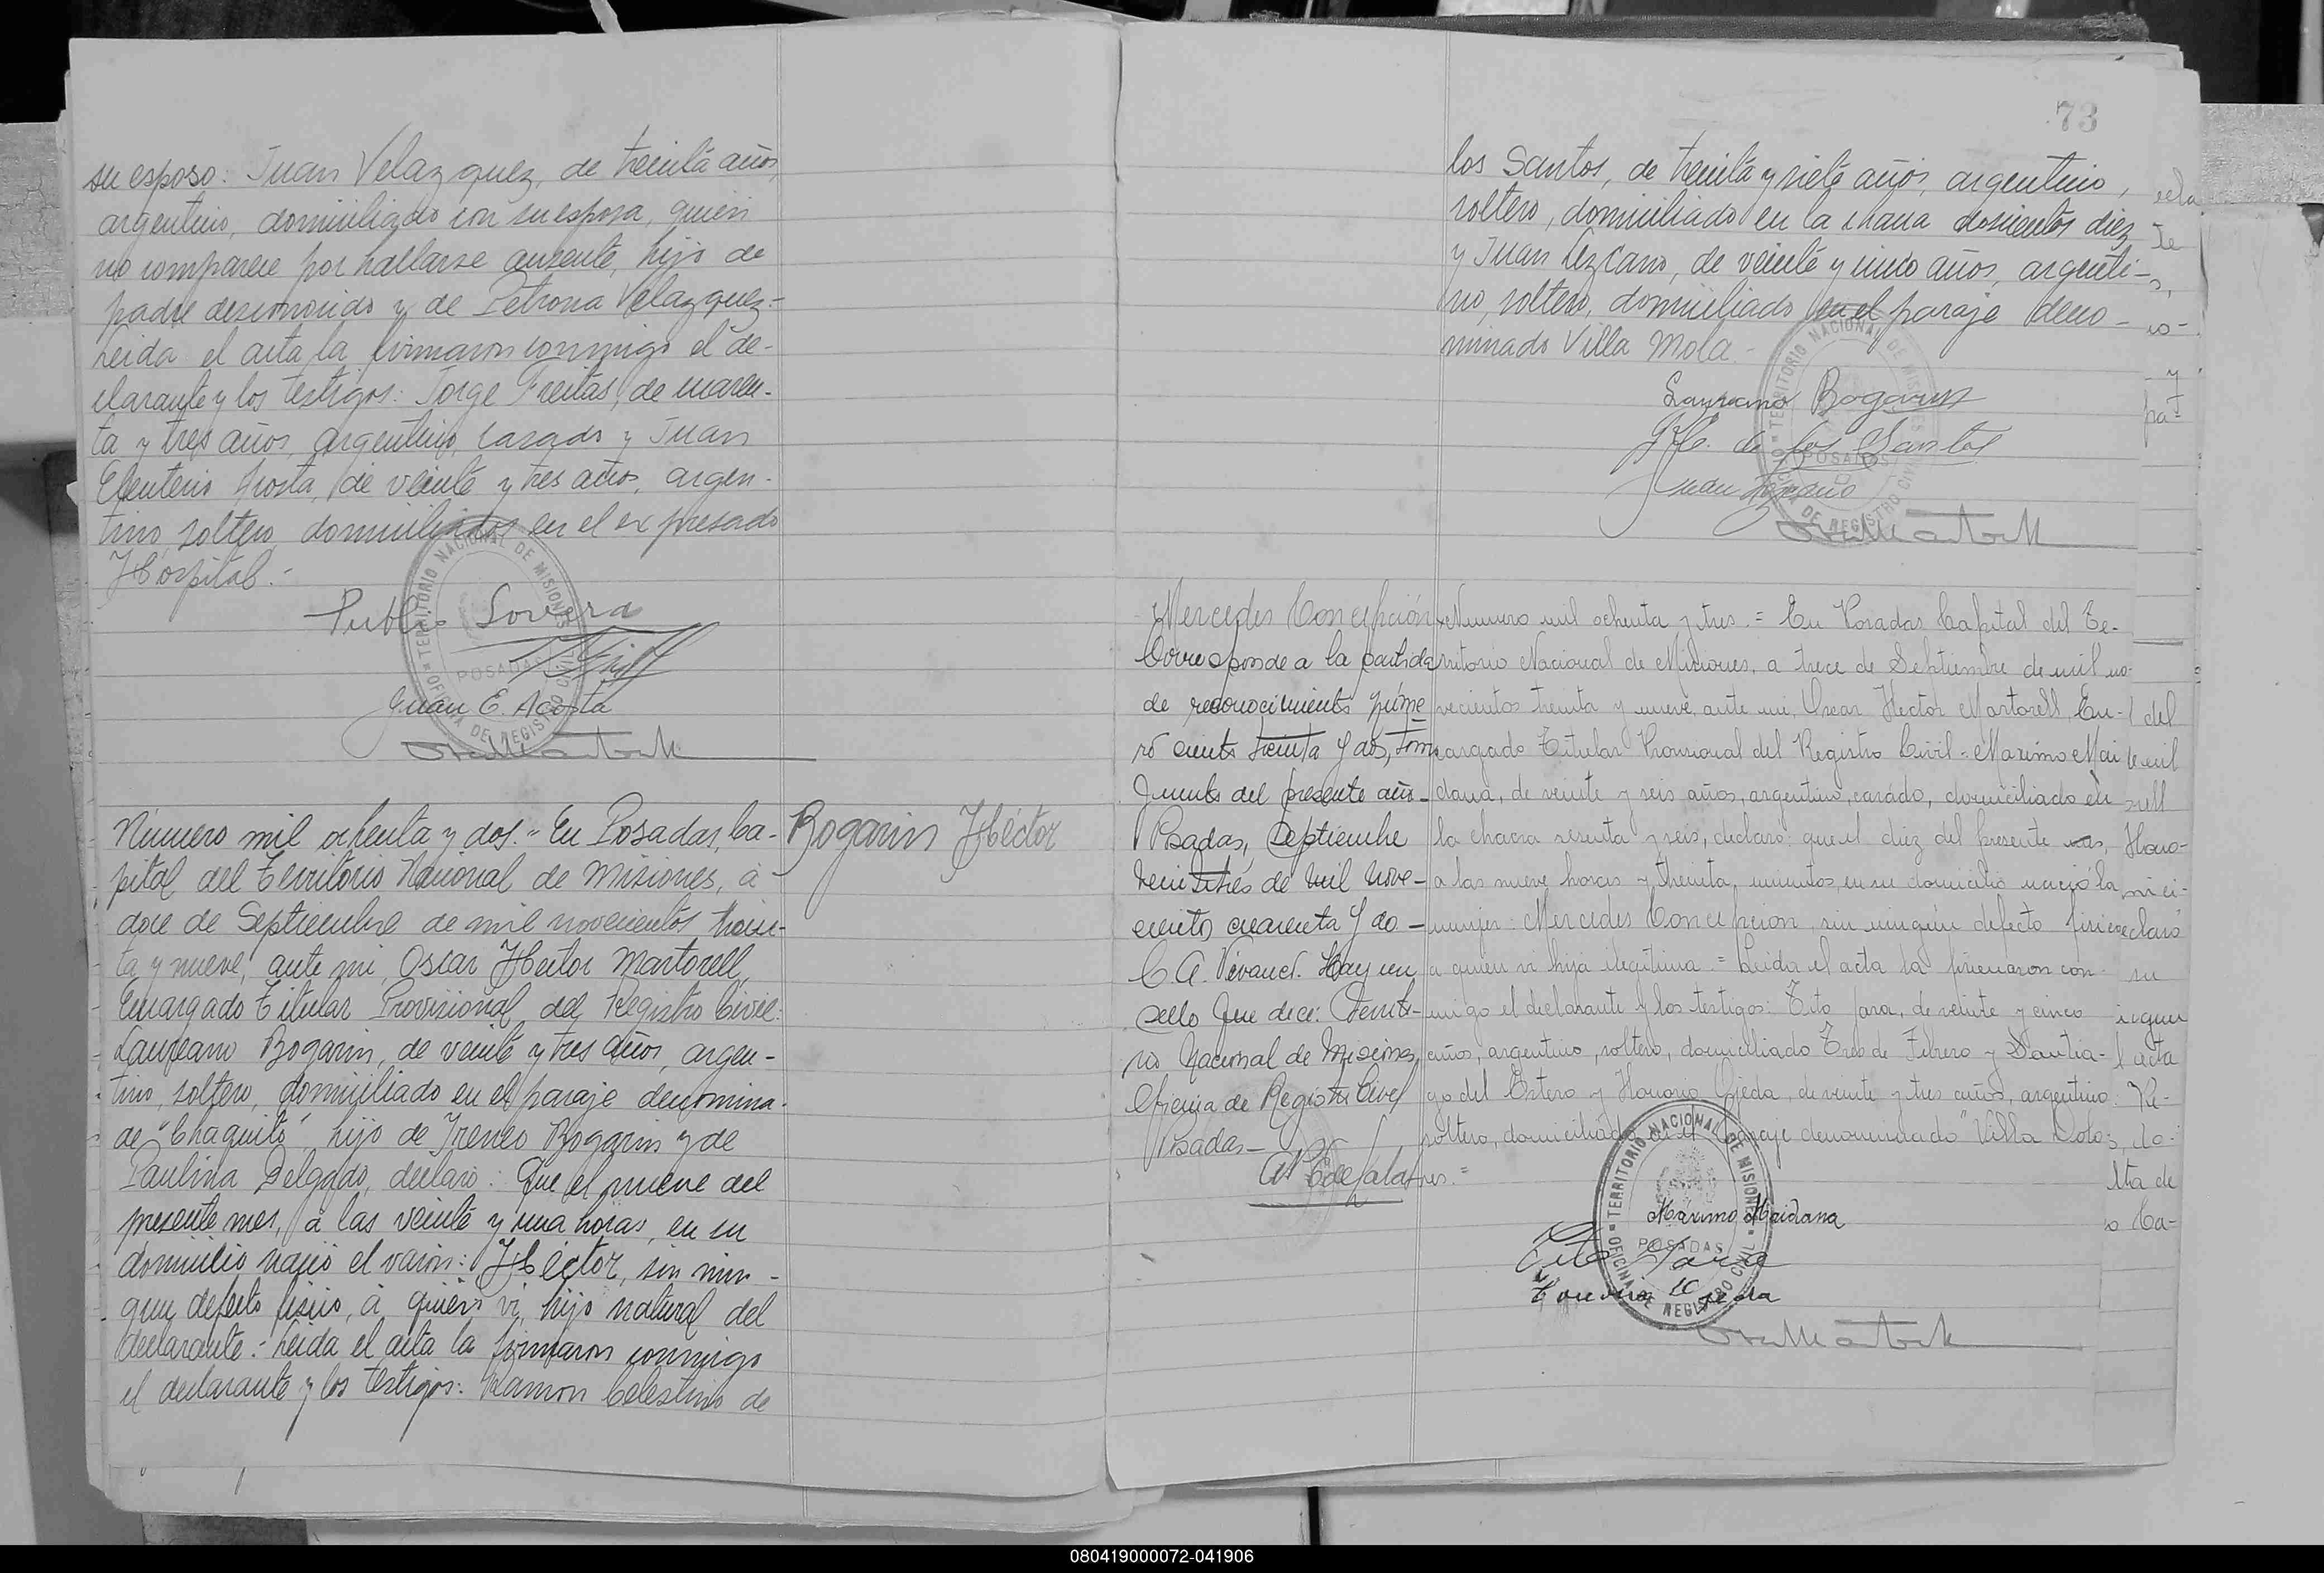 su esposo: Juan Velazquez, de treinta años,
argentino, domiciliado con su esposa, quien
no comparece por hallarse ausente, hijo de
padre desconocido y de Petrona Velazquez.-
Leida el acta la firmaron conmigo el de-
clarante y los testigos: Jorge Freitas, de cuaren-
ta y tres años, argentino, casado y Juan
Eleuterio Acosta, de veinte y tres años, argen-
tino, soltero, domiciliados en el expresado
Hospital.-
Publio Lovera
Juan E. Acosta
TERRITORIO NACIONAL DE MISIONES
POSADAS
OFICINA DE REGISTRO CIVIL
Bogarin Héctor
Número mil ochenta y dos.- En Posadas, Ca-
pital del Territorio Nacional de Misiones, a
doce de Septiembre de mil novecientos trein-
ta y nueve, ante mi, Oscar Hector Martorell,
Encargado Titular Provisional del Registro Civil:
Laureano Bogarin, de veinte y tres años, argen-
tino, soltero, domiciliado en el paraje denomina-
do "Chaquito", hijo de Ireneo Bogarin y de
Paulina Delgado, declaró: Que el nueve del
presente mes, a las veinte y una horas, en su
domicilio nació el varón: Héctor, sin nin-
gun defecto fisico, a quien vi, hijo natural del
declarante.- Leida el acta la firmaron conmigo
el declarante y los testigos: Ramon Celestino de
73
los Santos, de treinta y siete años, argentino,
soltero, domiciliado en la chacra doscientos diez
y Juan Lezcano, de veinte y cinco años, argenti-
no, soltero, domiciliado en el paraje deno-
minado Villa Mola.-
Laureano Bogarin
R C. de los Santos
Juan Lezcano
TERRITORIO NACIONAL DE MISIONES
POSADAS
OFICINA DE REGISTRO CIVIL
Mercedes Concepción
Corresponde a la partida
de reconocimiento núme
ro ciento treinta y dos, tomo
Posadas, Septiembre
veintitrés de mil nove-
cientos cuarenta y do-
sello que dice: Territo-
rio Nacional de Misiones,
Oficina de Registro Civil
Posadas-
Numero mil ochenta y tres.= En Posadas Capital del Te-
rritorio Nacional de Misiones, a trece de Septiembre de mil no-
vecientos treinta y nueve, ante mi, Oscar Hector Martorell, En-
cargado Titular Provisional del Registro Civil= Maximo Mai
dana, de veinte y seis años, argentino, casado, domiciliado en
la chacra sesenta y seis, declaró: que el diez del presente mes,
a las nueve horas y treinta minutos, en su domicilio nació la
mujer: Mercedes Concepcion, sin ningún defecto fisico
a quien vi hija ilegitima.= Leida el acta la firmaron con
migo el declarante y los testigos: Tito Jara, de veinte y cinco
años, argentino, soltero, domiciliado Tres de Febrero y Santia-
go del Estero y Honorio Ojeda, de veinte y tres años, argentino,
soltero, domiciliado en el paraje denominado "Villa Dolo-
res.=
Maximo Maidana
Tito Jara
TERRITORIO NACIONAL DE MISIONES
POSADAS
OFICINA DE REGISTRO CIVIL
080419000072-041906